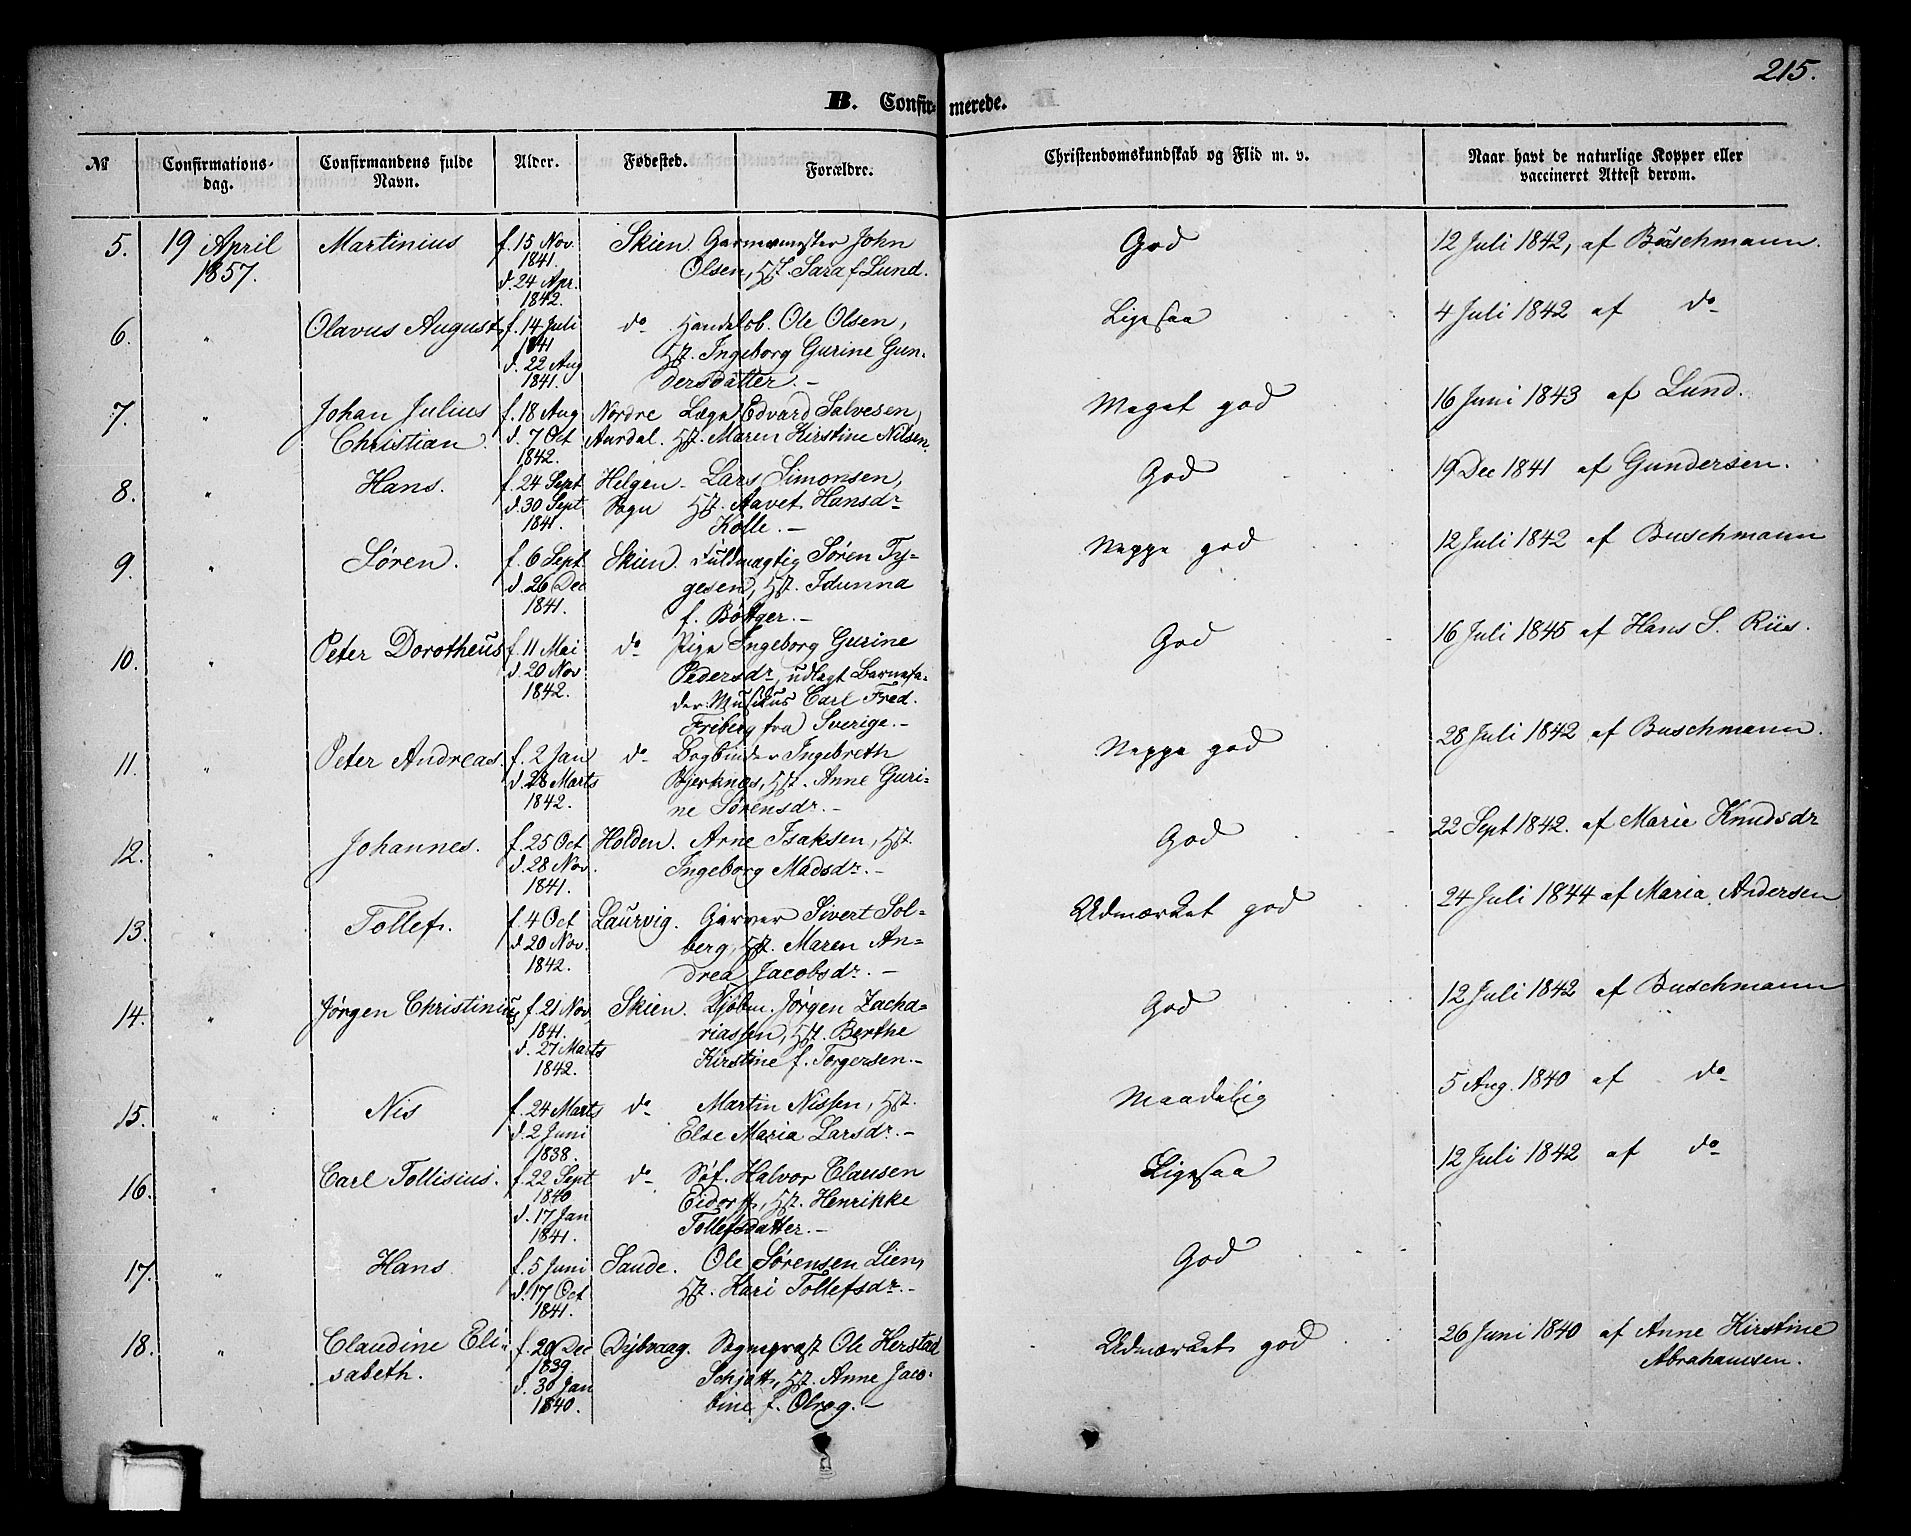 215.
B. Confirmerede.
№ Confirmations-dag. Confirmandens fulde Navn. Alder. Fødested. Forældre. Christendomskundskab og Flid m. v. Naar havt de naturlige Kopper eller vaccineret Attest derom.
5. 19 April Martinius f. 15 Nov. Skien. Garvermester John God 12 Juli 1842, af Buschmann.
1857. 1841. Olsen, Hst. Sara f. Lund.
d. 24 Apr.
1842.
6. " Olavus August f. 14 Juli do Handelsb. Ole Olsen, Ligesaa 4 Juli 1842 af do
1841 Hst. Ingeborg Gurine Gun-
d. 22 Aug dersdatter.-
1841.
7. " Johan Julius f. 18 Aug Nordre Læge Edvard Salvesen, Meget god 16 Juni 1843 af Lund.
Christian. d. 7 Oct Aurdal. Hst. Maren Kirstine Nilsen.
1842.
8. " Hans. f. 24 Sept Helgen- Lars Simonsen, God 19 Dec 1841 af Gundersen.
d. 30 Sept Sogn Hst. Aavet Hansdr
1841. Kolle.-
9. " Søren. f. 6 Sept Skien. Fuldmægtig Søren Ty- Neppe god 12 Juli 1842 af Buschmann
d. 26 Dec gesen, Hst. Idunna
1841. f. Bøttger.-
10. " Peter Dorotheus f. 11 Mai do Pige Ingeborg Gurine God 16 Juli 1845 af Hans S. Riis.
d. 20 Nov Pedersdr, udlagt Barnefa-
1842. der: Musikus Carl Fred.
Friberg fra Sverige.-
11. " Peter Andreas. f. 2 Jan do Bogbinder Ingebreth Neppe god 28 Juli 1842 af Buschmann.
d. 28 Marts Bjerknes, Hst. Anne Guri-
1842. ne Sørensdr.-
12. " Johannes. f. 25 Oct Holden. Arne Isaksen, Hst. God 22 Sept 1842. af Marie Knudsdr
d. 28 Nov. Ingeborg Madsdr.-
1841.
13. " Tollef. f. 4 Oct Laurvig. Garver Sivert Sol- Udmærket god 24 Juli 1844 af Maria Andersen
d. 20 Nov. berg, Hst. Maren An-
1842. drea Jacobsdr.-
14. " Jørgen Christinius f. 21 Nov. Skien. Kjøbm. Jørgen Zacha- God 12 Juli 1842 af Buschmann
1841. riassen, Hst. Berthe
d. 27 Marts Kirstine f. Torgersen.-
1842.
15. " Nis f. 24 Marts do Martin Nissen, Hst. Maadelig 5 Aug. 1840 af do
d. 2 Juni Else Maria Larsdr.-
1838.
16. " Carl Tollisius. f. 22 Sept do Søf. Halvor Clausen Ligesaa 12 Juli 1842 af do
1840 Hst. Henrikke
d. 17 Jan Tollefsdatter.-
1841.
17. " Hans f. 5 Juni Saude. Ole Sørensen Lien, God
d. 17 Oct Hst. Kari Tollefsdr.-
1841.
18. " Claudine Eli- f. 20 Dec Dybvaag. Sognepræst Ole Herstad Udmærket god 26 Juni 1840 af Anne Kirstine
sabeth. 1839 Schjøtt, Hst. Anne Jaco- Abrahamsen.
d. 30 Jan bine f. Olrog.-
1840.